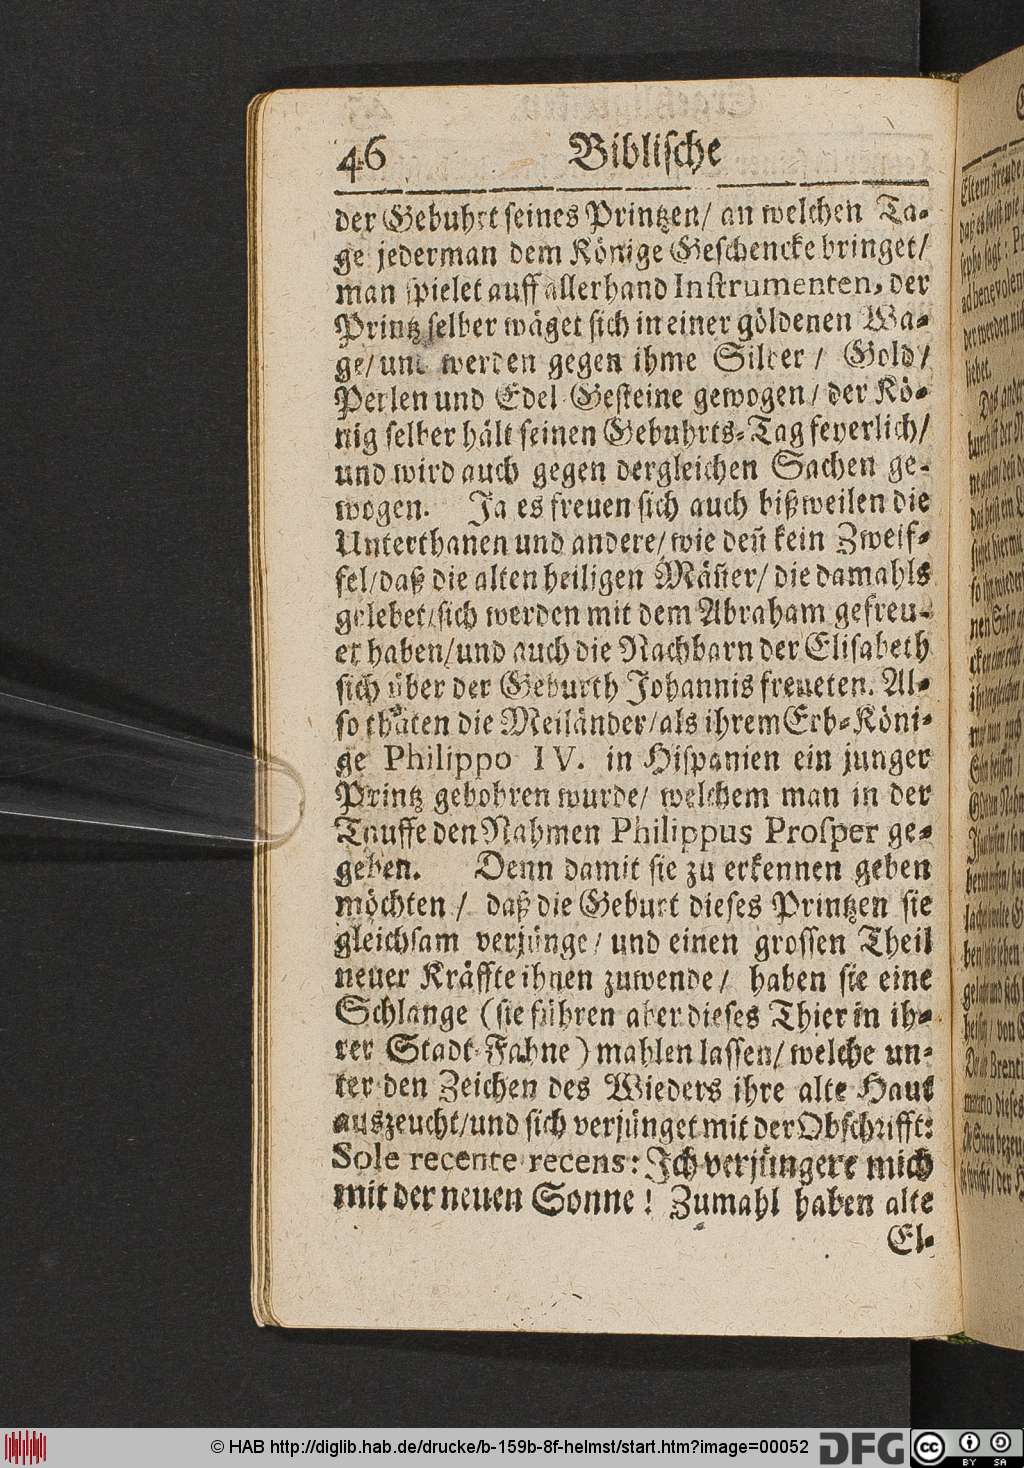 46 Biblische
der Gebuhrt seines Printzen/ an welchen Ta-
ge jederman dem Könige Geschencke bringet/
man spielet auff allerhand Instrumenten, der
Printz selber wäget sich in einer göldenen Wa-
ge/ und werden gegen ihme Silber / Gold/
Perlen und Edel-Gesteine gewogen/ der Kö-
nig selber hält seinen Gebuhrts-Tag feyerlich/
und wird auch gegen dergleichen Sachen ge-
wogen. Ja es freuen sich auch bißweilen die
Unterthanen und andere/ wie deñ kein Zweif-
fel/ daß die alten heiligen Mäñer/ die damahls
gelebet/ sich werden mit dem Abraham gefreu-
et haben/ und auch die Nachbarn der Elisabeth
sich über der Geburth Johannis freueten. Al-
so thäten die Meiländer/ als ihrem Erb-Köni-
ge Philippo IV. in Hispanien ein junger
Printz gebohren wurde/ welchem man in der
Tauffe den Nahmen Philippus Prosper ge-
geben. Denn damit sie zu erkennen geben
möchten / daß die Geburt dieses Printzen sie
gleichsam verjünge/ und einen grossen Theil
neuer Kräffte ihnen zuwende/ haben sie eine
Schlange (sie führen aber dieses Thier in ih-
rer Stadt-Fahne) mahlen lassen/ welche un-
ter den Zeichen des Wieders ihre alte Haut
auszeucht/ und sich verjünget mit der Obschrifft:
Sole recente recens: Ich verjüngere mich
mit der neuen Sonne! Zumahl haben alte
El-
© HAB http://diglib.hab.de/drucke/b-159b-8f-helmst/start.htm?image=00052 DFG cc BY SA